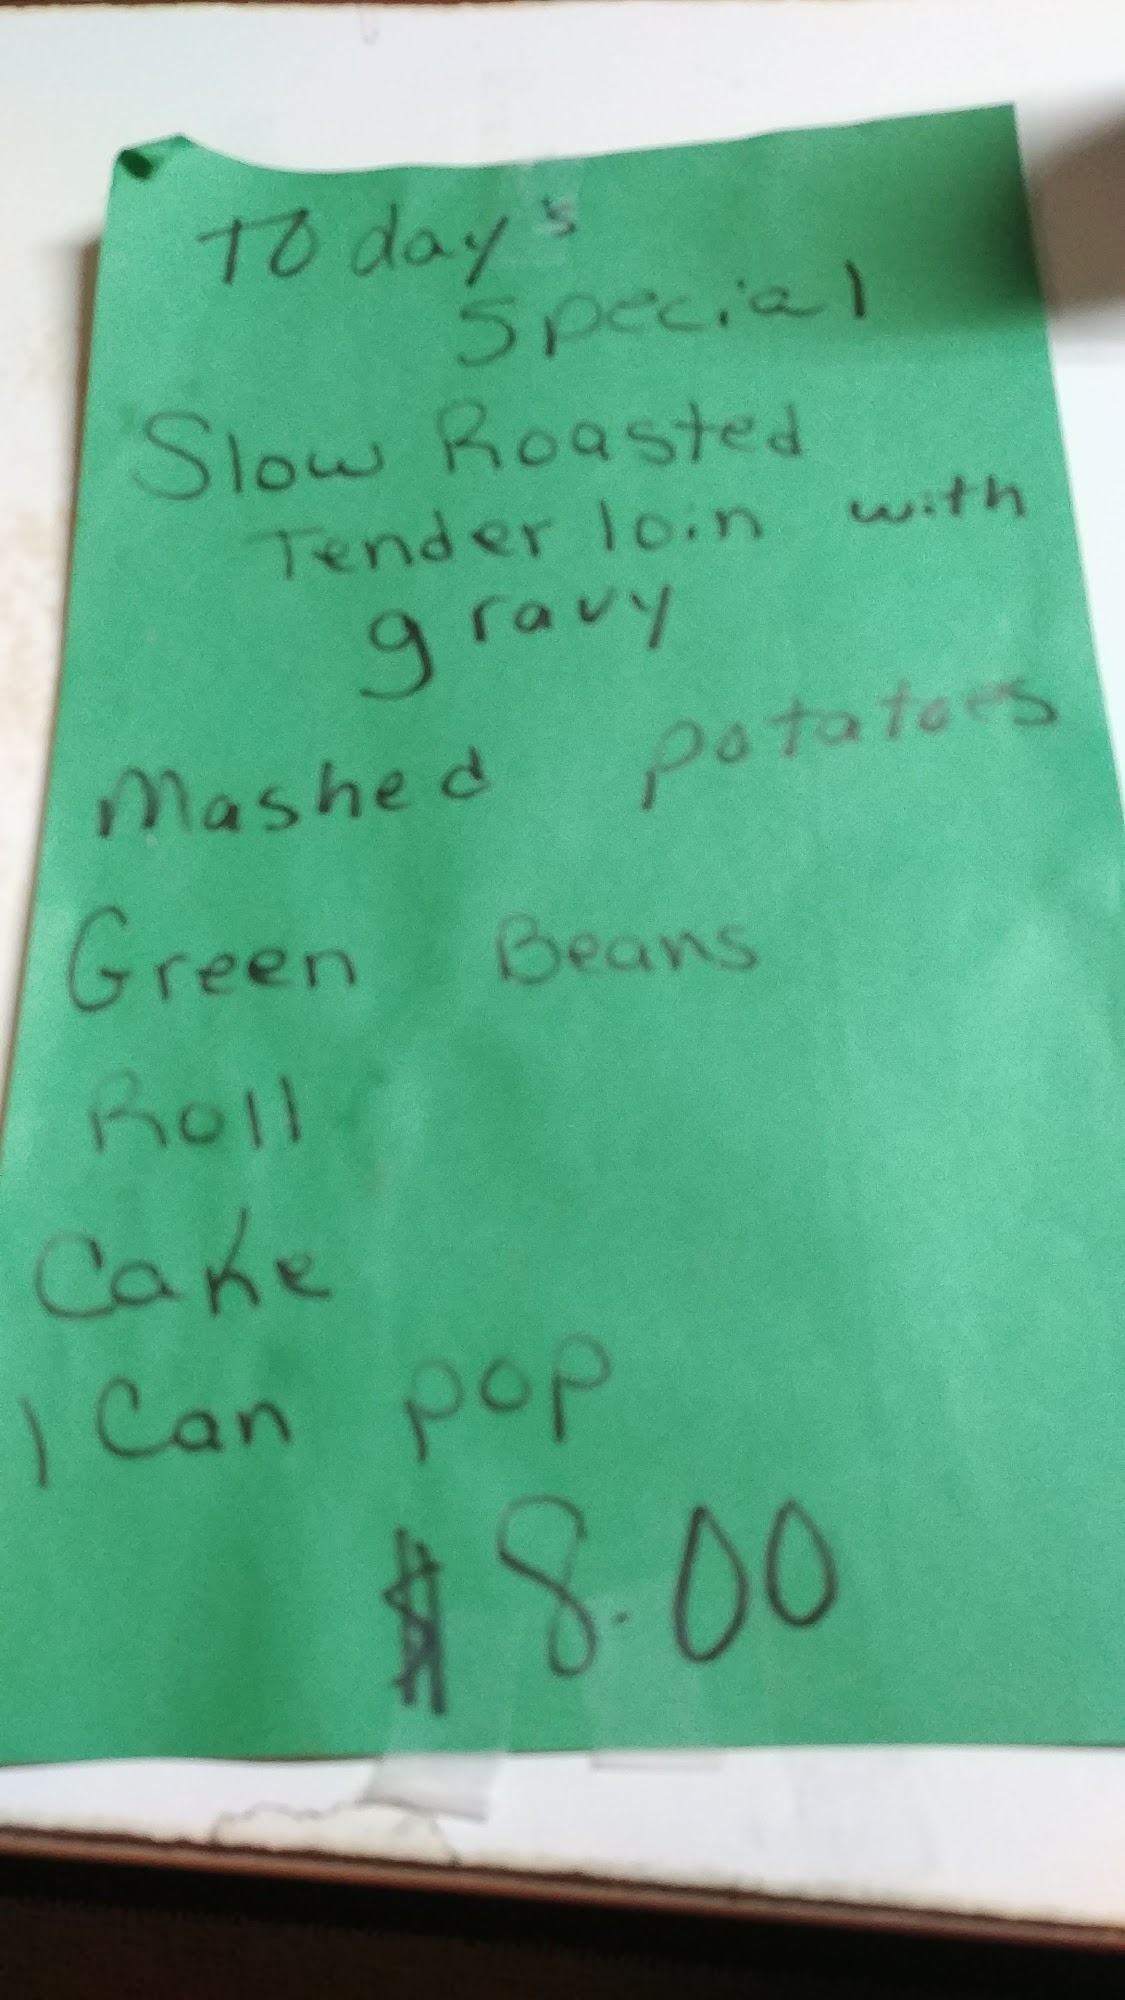 Today's
Special
Slow Roasted
Tenderloin with
gravy
Mashed potatoes
Green Beans
Roll
Cake
1 Can pop
$8.00